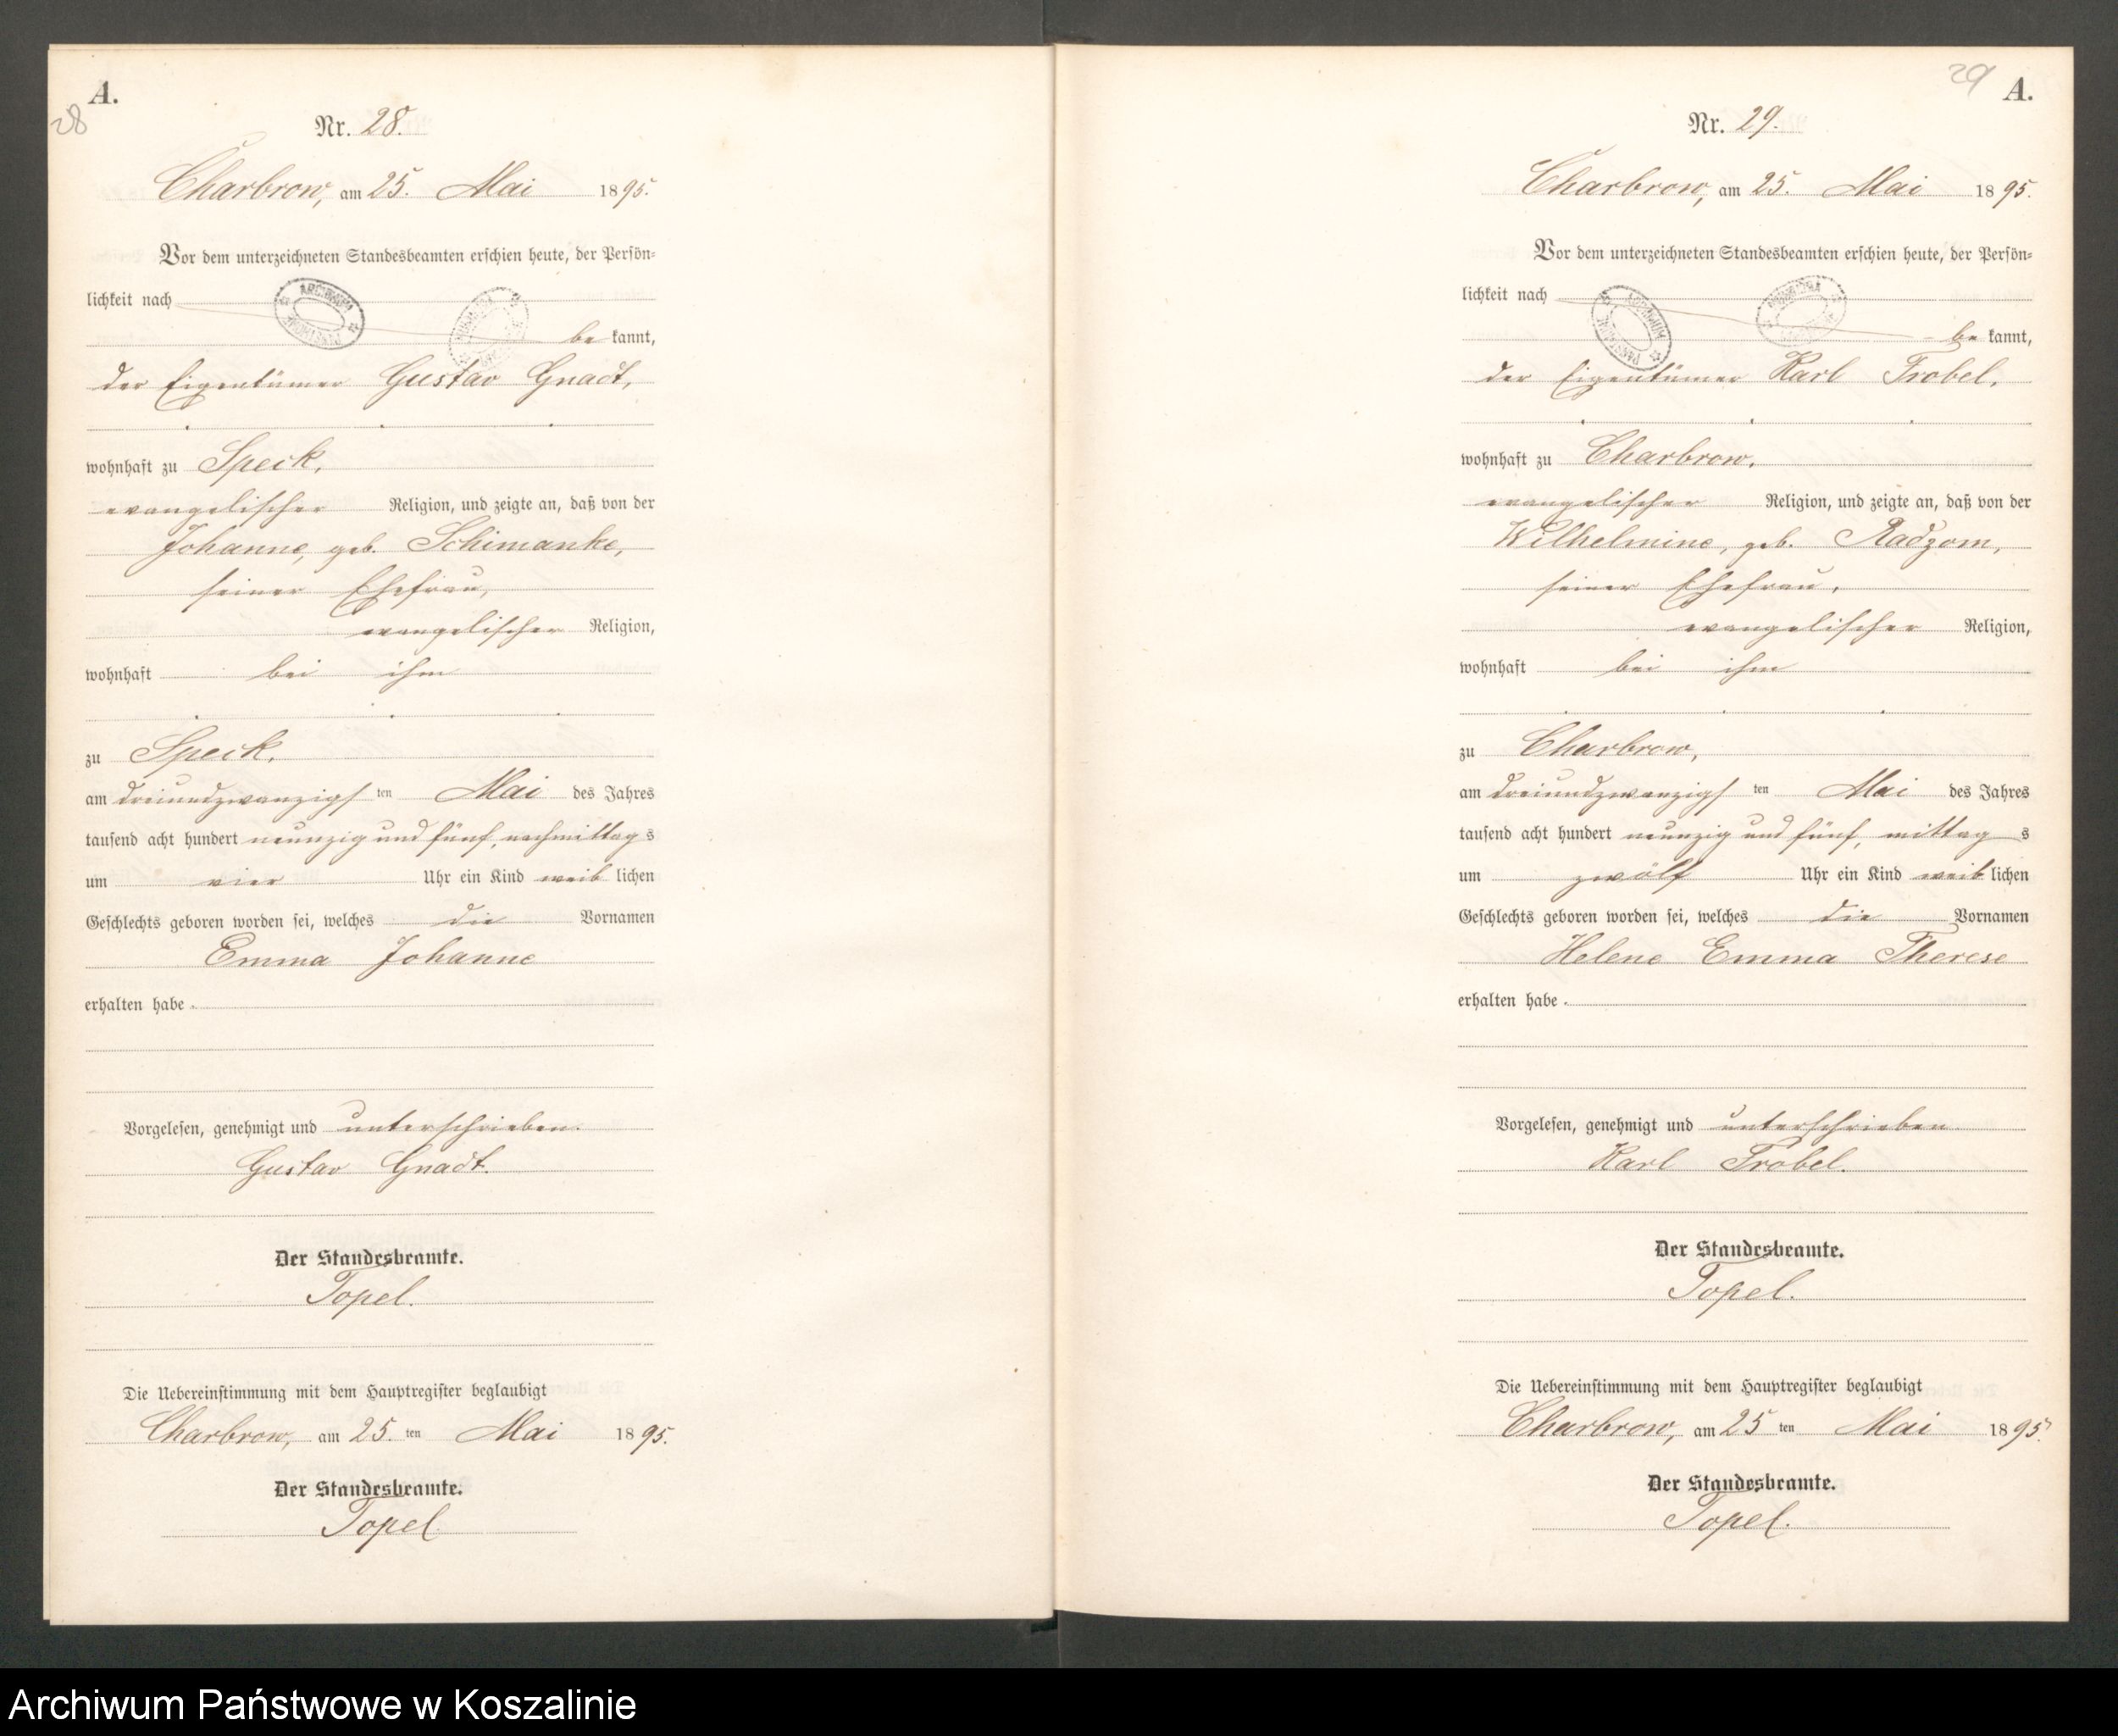 A.
28
Nr. 28.
Charbrow, am 25. Mai 1895.
Vor dem unterzeichneten Standesbeamten erschien heute, der Persön-
lichkeit nach
ARCHIWUM PAŃSTWOWE
be kannt,
der Eigentümer Gustav Gnadt,
wohnhaft zu Speck,
evangelischer Religion, und zeigte an, daß von der
Johanne, geb. Schimanke,
seiner Ehefrau,
evangelischer Religion,
wohnhaft bei ihm
zu Speck,
am dreiundzwanzigs ten Mai des Jahres
tausend acht hundert neunzig und fünf, nachmittag s
um vier Uhr ein Kind weib lichen
Geschlechts geboren worden sei, welches die Vornamen
Emma Johanne
erhalten habe.
Vorgelesen, genehmigt und unterschrieben.
Gustav Gnadt.
Der Standesbeamte.
Topel.
Die Uebereinstimmung mit dem Hauptregister beglaubigt
Charbrow, am 25. ten Mai 1895.
Der Standesbeamte.
Topel
29
A.
Nr. 29.
Charbrow, am 25. Mai 1895.
Vor dem unterzeichneten Standesbeamten erschien heute, der Persön-
lichkeit nach
ARCHIWUM PAŃSTWOWE
be kannt,
der Eigentümer Karl Trobel,
wohnhaft zu Charbrow,
evangelischer Religion, und zeigte an, daß von der
Wilhelmine, geb. Radzom,
seiner Ehefrau,
evangelischer Religion,
wohnhaft bei ihm
zu Charbrow,
am dreiundzwanzigs ten Mai des Jahres
tausend acht hundert neunzig und fünf, mittag s
um zwölf Uhr ein Kind weib lichen
Geschlechts geboren worden sei, welches die Vornamen
Helene Emma Therese
erhalten habe.
Vorgelesen, genehmigt und unterschrieben
Karl Trobel.
Der Standesbeamte.
Topel.
Die Uebereinstimmung mit dem Hauptregister beglaubigt
Charbrow, am 25 ten Mai 1895.
Der Standesbeamte.
Topel.
Archiwum Państwowe w Koszalinie